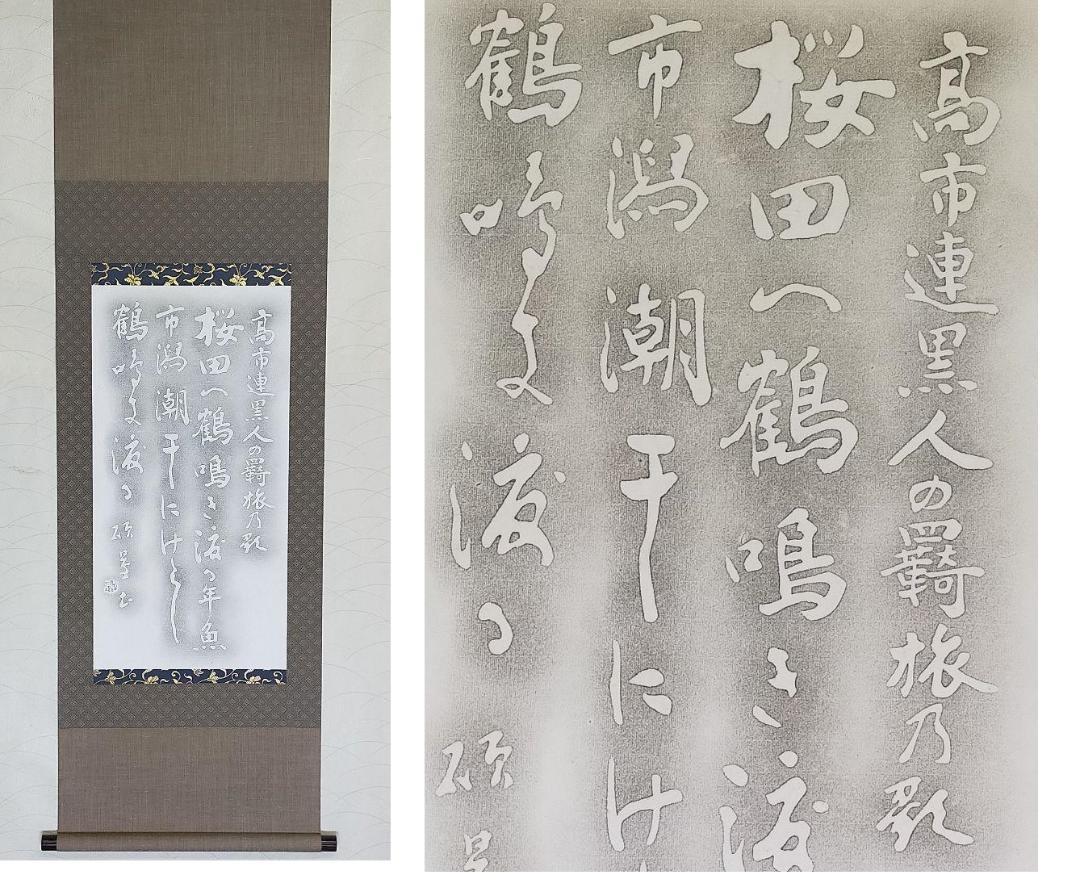 高市連黒人の羈旅乃歌
桜田へ鶴鳴き渡る年魚
市潟潮干にけらし
鶴鳴き渡る 碩
高市連黒人の羈旅乃歌
桜田へ鶴鳴き渡
市潟潮干にけ
鶴鳴き渡る 碩